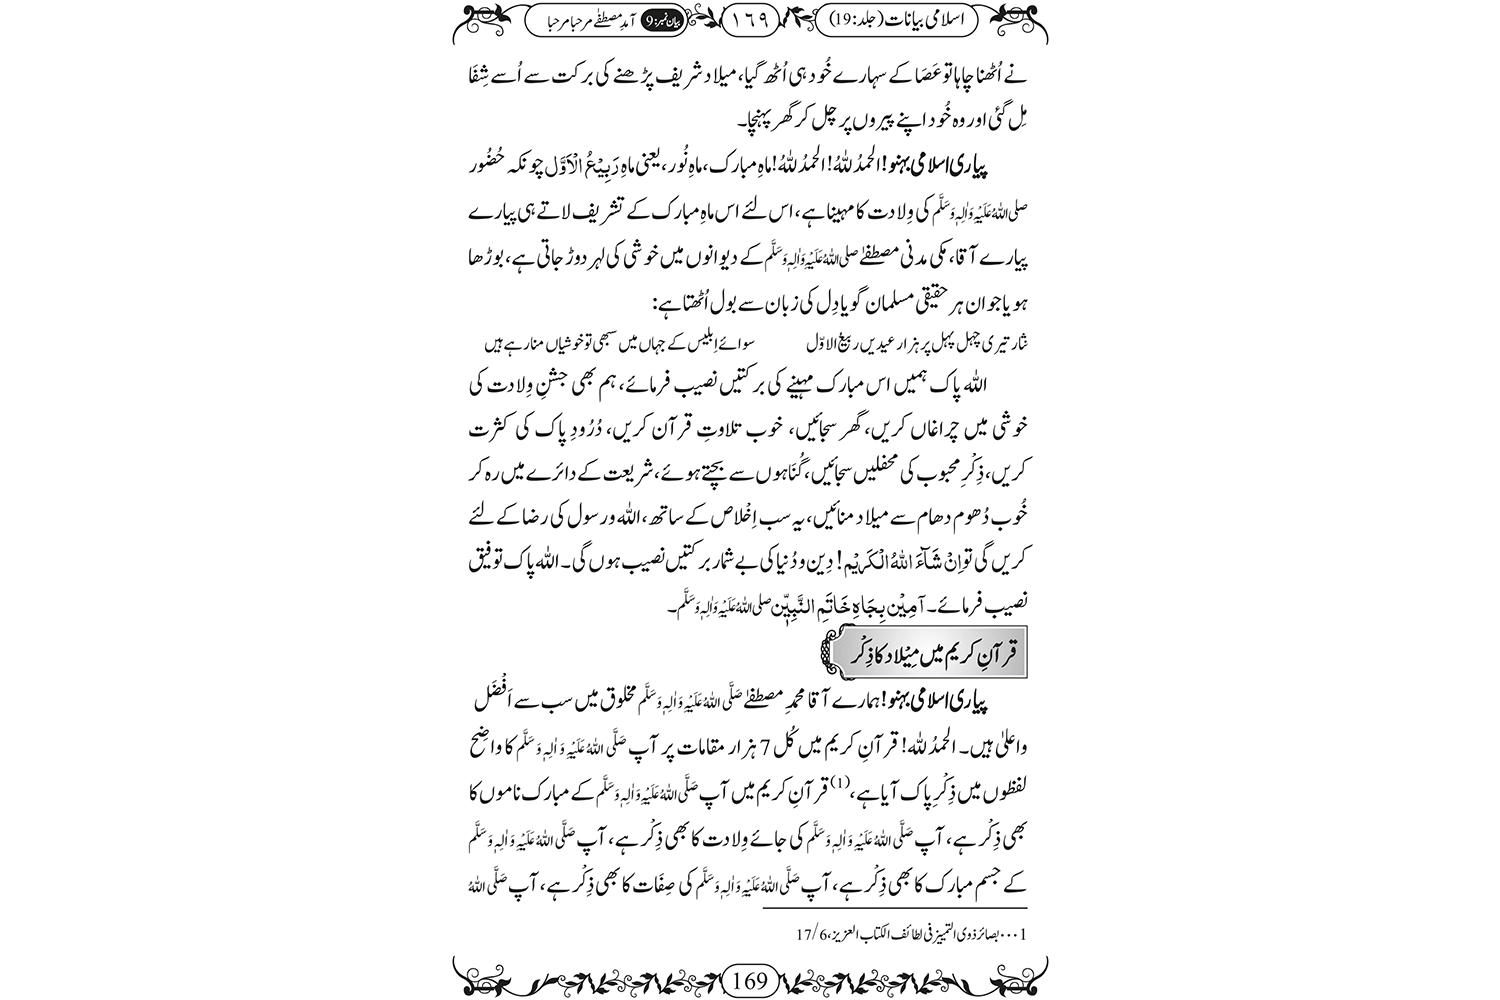 اسلامی بیانات (جلد:19) ۱۶۹ بیان نمبر:9 آمدِ مصطفےٰ مرحبا مرحبا
نے اُٹھنا چاہا تو عَصَا کے سہارے خُود ہی اُٹھ گیا، میلاد شریف پڑھنے کی برکت سے اُسے شِفَا
مِل گئی اور وہ خُود اپنے پیروں پر چل کر گھر پہنچا۔
پیاری اسلامی بہنو! الحمدُ للہُ! الحمدُ للہُ! ماہِ مبارک، ماہِ نُور، یعنی ماہِ رَبِیْعُ الْاَوَّل چونکہ حُضُور
صلی اللہُ عَلَیْہِ وَاٰلِہٖ وَسَلَّم کی وِلادت کا مہینا ہے، اس لئے اس ماہِ مبارک کے تشریف لاتے ہی پیارے
پیارے آقا، مکی مدنی مصطفےٰ صلی اللہُ عَلَیْہِ وَاٰلِہٖ وَسَلَّم کے دیوانوں میں خوشی کی لہر دوڑ جاتی ہے، بوڑھا
ہو یا جوان ہر حقیقی مسلمان گویا دِل کی زبان سے بول اُٹھتا ہے:
نثار تیری چہل پہل پر ہزار عیدیں ربیعُ الاوّل سوائے اِبلیس کے جہاں میں سبھی تو خوشیاں منا رہے ہیں
اللہ پاک ہمیں اس مبارک مہینے کی برکتیں نصیب فرمائے، ہم بھی جشنِ وِلادت کی
خوشی میں چراغاں کریں، گھر سجائیں، خوب تلاوتِ قرآن کریں، دُرُودِ پاک کی کثرت
کریں، ذِکْرِ محبوب کی محفلیں سجائیں، گُنَاہوں سے بچتے ہوئے، شریعت کے دائرے میں رہ کر
خُوب دُھوم دھام سے میلاد منائیں، یہ سب اِخْلاص کے ساتھ، اللہ ورسول کی رضا کے لئے
کریں گی تو اِنْ شَآءَ اللہُ الْکَرِیْم! دِین و دُنیا کی بے شمار برکتیں نصیب ہوں گی۔ اللہ پاک توفیق
نصیب فرمائے۔ آمِیْن بِجَاہِ خَاتَمِ النَّبِیّٖن صلی اللہُ عَلَیْہِ وَاٰلِہٖ وَسَلَّم۔
قرآنِ کریم میں مِیْلاد کا ذِکْر
پیاری اسلامی بہنو! ہمارے آقا محمدِ مصطفےٰ صَلَّی اللہُ عَلَیْہِ وَاٰلِہٖ وَسَلَّم مخلوق میں سب سے اَفْضَل
واعلیٰ ہیں۔ الحمدُ للہ! قرآنِ کریم میں کُل 7 ہزار مقامات پر آپ صَلَّی اللہُ عَلَیْہِ وَاٰلِہٖ وَسَلَّم کا واضِح
لفظوں میں ذِکْرِ پاک آیا ہے، (1) قرآنِ کریم میں آپ صَلَّی اللہُ عَلَیْہِ وَاٰلِہٖ وَسَلَّم کے مبارک ناموں کا
بھی ذِکْر ہے، آپ صَلَّی اللہُ عَلَیْہِ وَاٰلِہٖ وَسَلَّم کی جائے وِلادت کا بھی ذِکْر ہے، آپ صَلَّی اللہُ عَلَیْہِ وَاٰلِہٖ وَسَلَّم
کے جسمِ مبارک کا بھی ذِکْر ہے، آپ صَلَّی اللہُ عَلَیْہِ وَاٰلِہٖ وَسَلَّم کی صِفَات کا بھی ذِکْر ہے، آپ صَلَّی اللہُ
1...بصائر ذوی التمییز فی لطائف الکتاب العزیز، 17/6
169